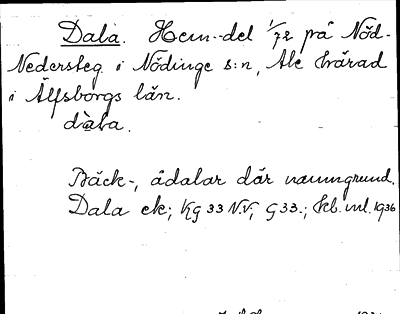 Dala. Hem.-del 1/72 på Nöd-
Nedersteg i Nödinge s:n, Ale härad
i Älfsborgs län.
dàla.
Bäck-, ådalar där namngrund.
Dala ek; Kg 33 N.V; G 33.; kb. inl. 1936